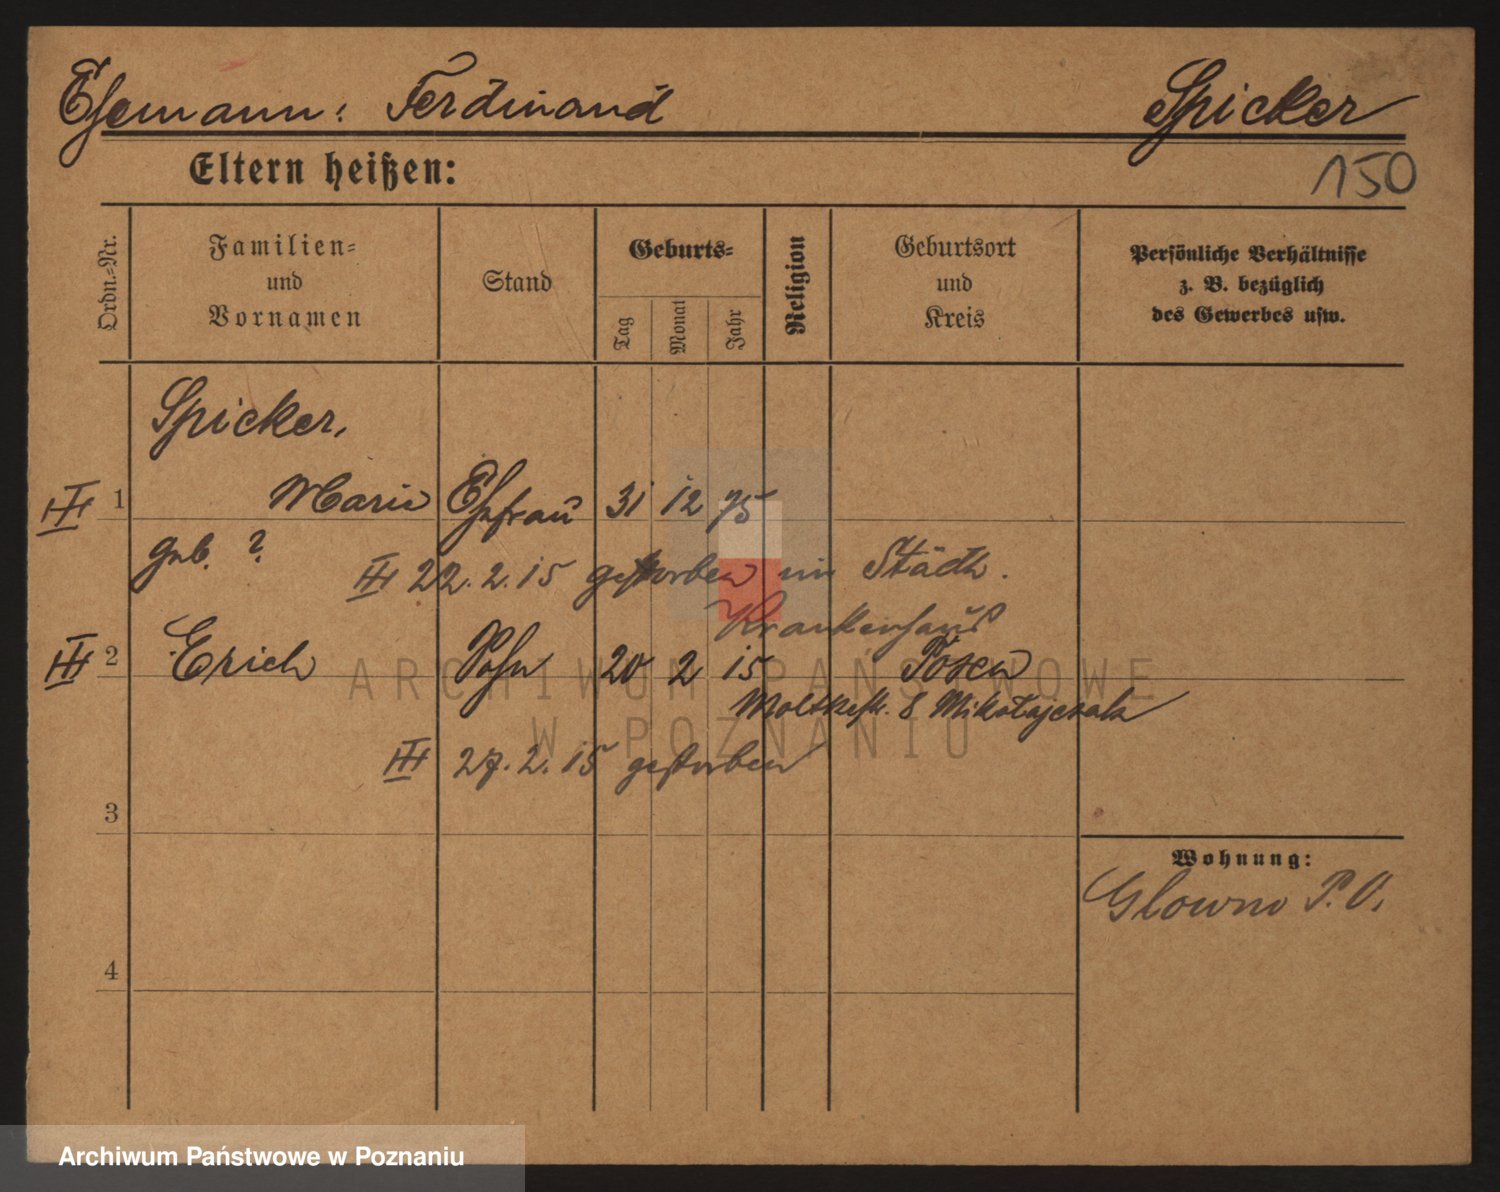 Ehemann: Ferdinand Spicker
Eltern heißen: 150
Ordn.=Nr. Familien= und Vornamen Stand Geburts= Tag Monat Jahr Religion Geburtsort und Kreis Persönliche Verhältnisse z. B. bezüglich des Gewerbes usw.
Spicker,
III 1 Marie Ehefrau 31 12 75
geb. ?
III 22. 2. 15 gestorben im Städt.
Krankenhaus
III 2 Erich Sohn 20 2 15 Posen
Moltkestr. 8 Mikołajczak
III 27. 2. 15 gestorben
3
Wohnung:
Glowno P. O.
4
ARCHIWUM PAŃSTWOWE
W POZNANIU
Archiwum Państwowe w Poznaniu